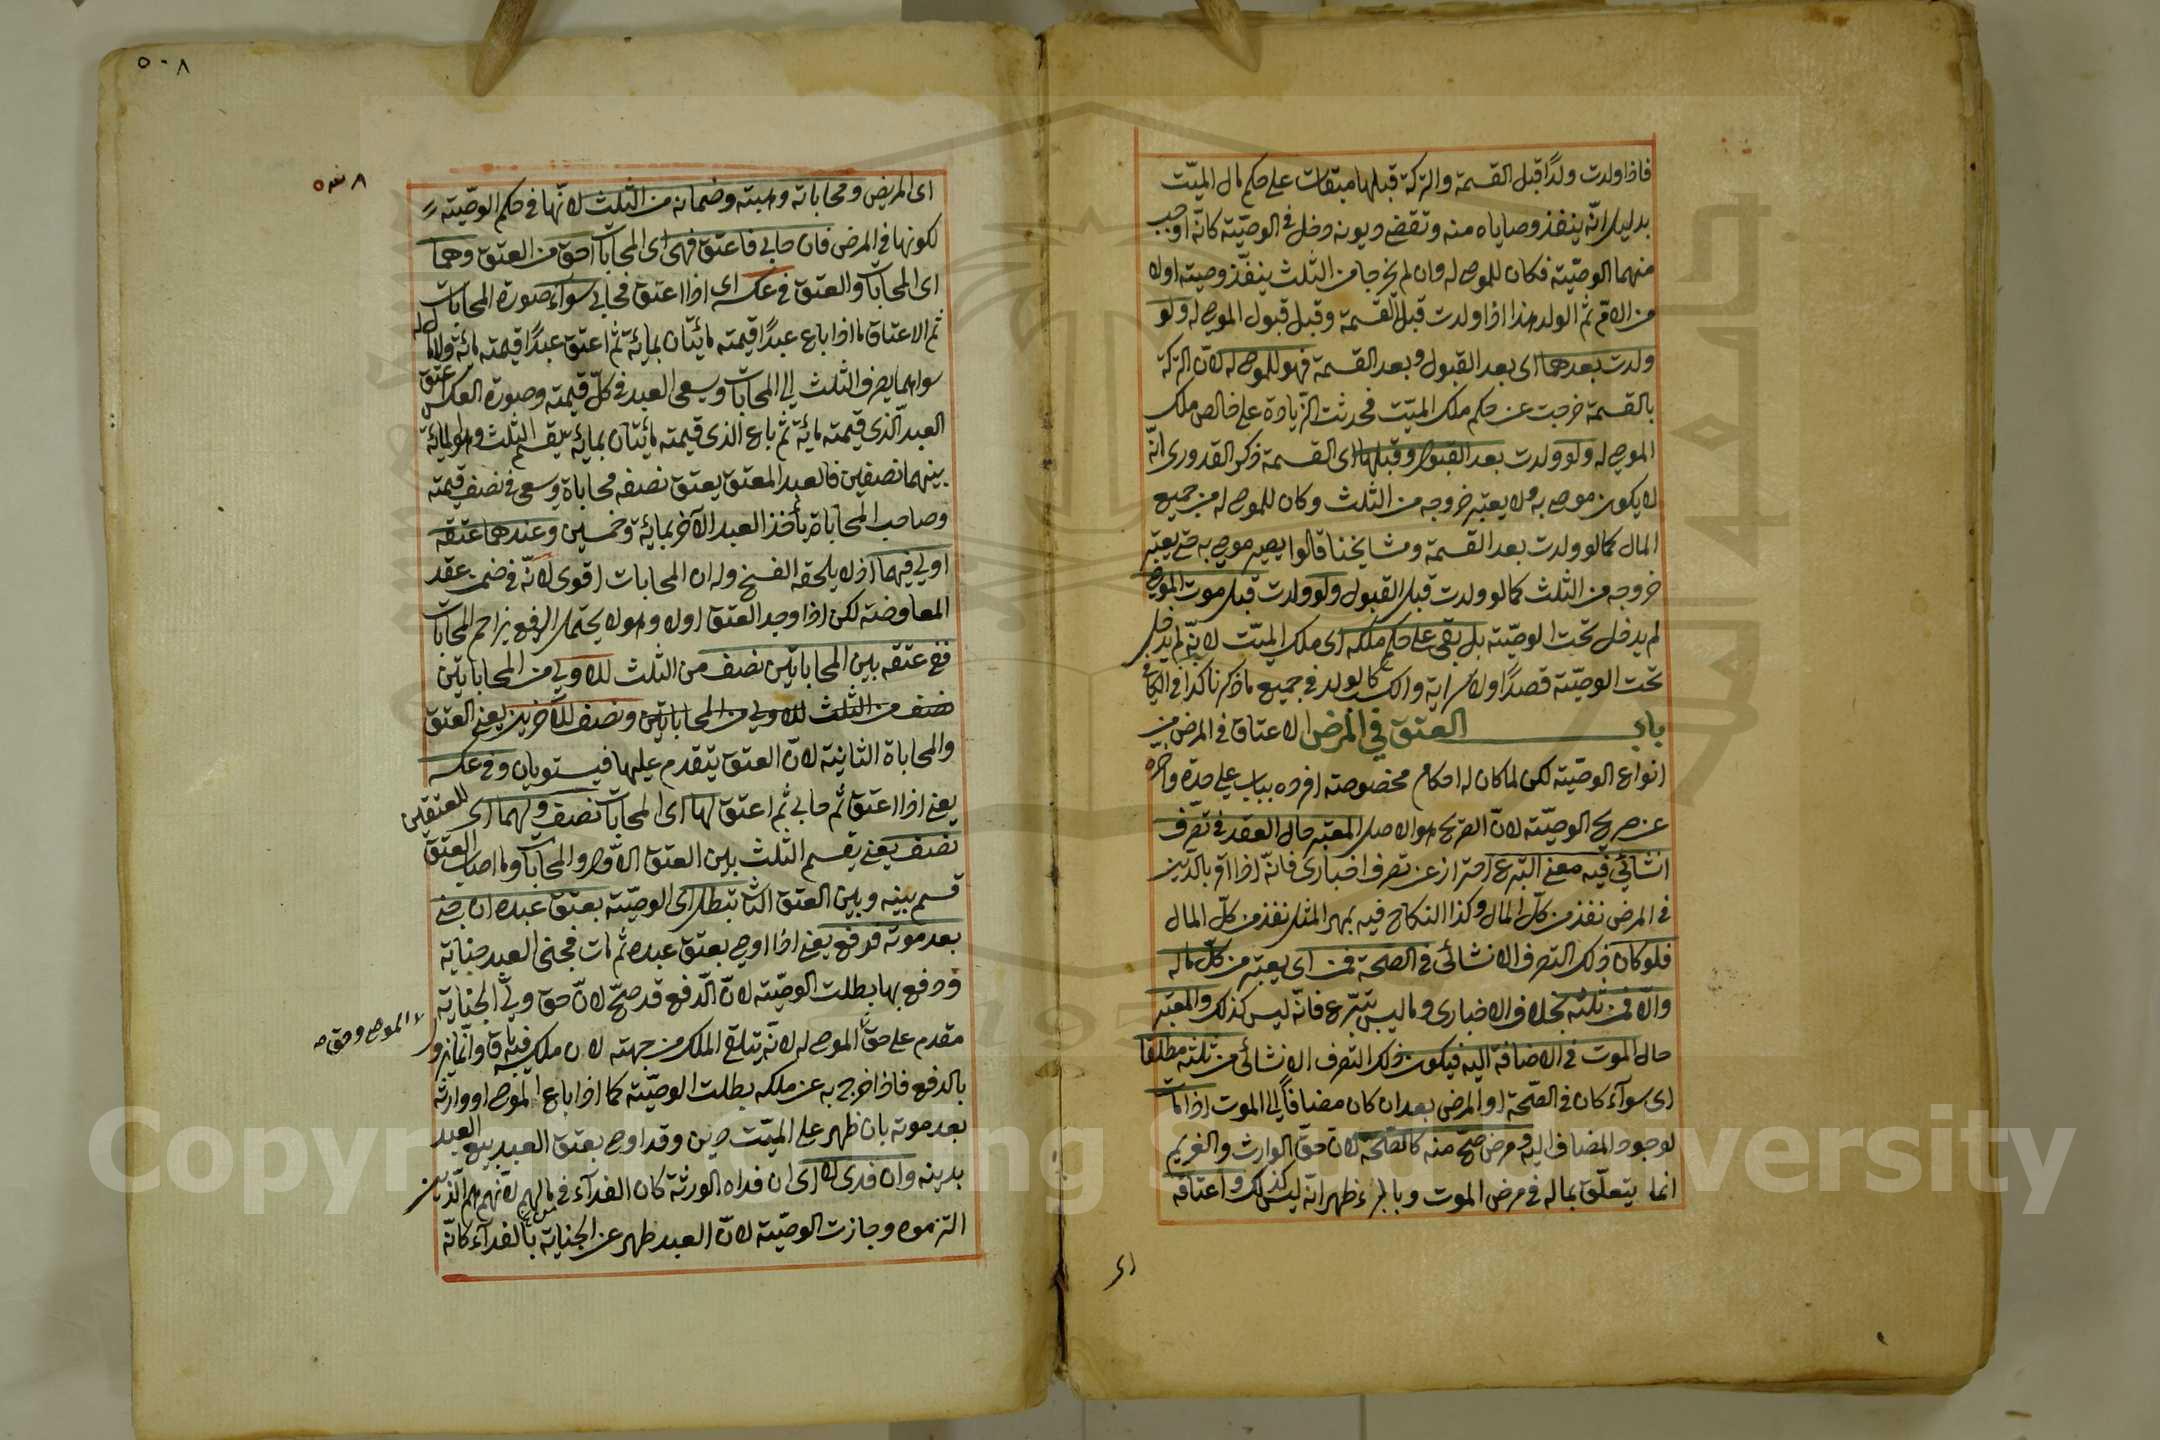 فاذا ولدت ولدًا قبل القسمة والتركة قبلها مبقات على حكم مال الميّت
بدليل انّه ينفذ وصاياه منه وتقضى ديونه دخل في الوصيّة كانّه اوجب
منهما الوصيّة فكان للموصى له وان لم يخرجا من الثلث ينفّذ وصيته اولا
من الامّ ثم الولد هذا اذا ولدت قبل القسمة وقبل قبول الموصى له ولو
ولدت بعدهما اى بعد القبول وبعد القسمة فهو للموصى له لانّ التركة
بالقسمة خرجت عن حكم ملك الميّت فحدثت الزيادة على خالص ملك
الموصى له ولو ولدت بعد القبول وقبلها اى القسمة ذكر القدورى انّه
لا يكون موصى به ولا يعتبر خروجه من الثلث وكان للموصى له من جميع
المال كما لو ولدت بعد القسمة ومشايخنا قالوا يصير موصى به حتى يعتبر
خروجه من الثلث كما لو ولدت قبل القبول ولو ولدت قبل موت الموصى
لم يدخل تحت الوصيّة بل بقى على حكم ملكه اى ملك الميّت لانّه لم يدخل
تحت الوصيّة قصدًا ولا سراية والكسب كالولد في جميع ما ذكرنا كذا في الكافى
باب العتق في المرض الاعتاق في المرض من
انواع الوصيّة لكن لما كان له احكام مخصوصة افرده بباب على حدة واخره
عن صريح الوصيّة لانّ الصريح هو الاصل المعتبر حال العقد في تصرّف
انشائي فيه معنى التبرع احتراز عن تصرف اخبارى فانّه اذا اقر بالدّين
في المرض نفذ من كلّ المال وكذا النكاح فيه بمهر المثل نفذ من كلّ المال
فلو كان ذلك التصرف الانشائى في الصحة فمن اى يعتبر من كلّ ماله
والّا فمن ثلثه بخلاف الاخبارى وما ليس بتبرّع فانّه ليس كذلك والمعتبر
حال الموت في الاضافة اليه فيكون ذلك التصرف الانشائى من ثلثه مطلقا
اى سوآء كان في الصّحة او المرض بعد ان كان مضافاً الى الموت اذا مات
لوجود المضاف اليه ومرض صحّ منه كالصّحة لانّ حقّ الوارث والغريم
انما يتعلّق بماله في مرض الموت وبالبرء ظهر انّه ليس كذلك واعتاقه
اى
٥٠٨
٥٠٨
اى المريض ومحاباته وهبته وضمانه من الثّلث لانّها في حكم الوصيّة
لكونها في المرض فان حابى فاعتق فهى اى المحابات احق من العتق وهما
اى المحابات والعتق في عكسه اى اذا اعتق فحابى سوآء صورة المحابات
ثم الاعتاق ما اذا باع عبدًا قيمته مائتان بمائة ثم اعتق عبدًا قيمته مائة ولا مال له
سواهما يصرف الثلث الى المحابات ويسعى العبد في كلّ قيمته وصورة العكس عتق
العبد الّذى قيمته مائة ثم باع الذى قيمته مائتان بمائة يقسم الثلث وهو المائة
بينهما نصفين فالعبد المعتق يعتق نصفه محاباة ويسعى في نصف قيمته
وصاحب المحاباة يأخذ العبد الآخر بمائة وخمسين وعندهما عتقه
اولى فيهما اذ لا يلحقه الفسخ وله ان المحابات اقوى لانّه في ضمن عقد
المعاوضة لكن اذا وجد العتق اولا وهو لا يحتمل الرفع يزاحم المحابات
ففى عتقه بين المحاباتين نصف من الثلث للاولى من المحاباتين
نصف من الثلث للاولى من المحاباتين ونصف للآخرين يعنى العتق
والمحاباة الثانية لانّ العتق يتقدم عليها فيستويان وفى عكسه
يعنى اذا اعتق ثم حابى ثم اعتق لها اى المحابات نصف ولهما اى للمعتقين
نصف يعنى يقسم الثلث بين العتق الاوّل والمحابات وما اصاب العتق
قسم بينه وبين العتق الثانى تبطل اى الوصيّة بعتق عبده ان جنى
بعد موته فدفع يعنى اذا اوصى بعتق عبده ثم مات فجنى العبد جناية
ودفع بها بطلت الوصيّة لانّ الدّفع قد صحّ لانّ حق ولىّ الجناية
مقدم على حق الموصى له لانّه يتلقى الملك من جهته لان ملك فيه باق وانّما يزول
الموصى وحق صح
بالدفع فاذا خرج به عن ملكه بطلت الوصيّة كما اذا باع الموصى او وارثه
بعد موته بان ظهر على الميّت دين وقد اوصى بعتق العبد بيع العبد
بدينه وان فدى لا اى ان فداه الورثة كان الفدآء في مالهم لانّهم هم الّذين
التزموه وجازت الوصيّة لانّ العبد طهر عن الجناية بالفدآء كانّه